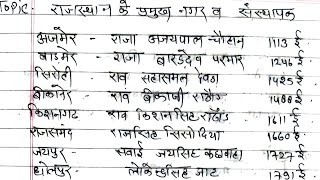 TOPIC- राजस्थान के प्रमुख नगर व संस्थापक
अजमेर - राजा अजयपाल चौहान 1113 ई.
बाडमेर - राजा बाहडदेव परमार 1246 ई.
सिरोही - राव सहासमल 1425 ई.
बीकानेर - राव बीकाजी राठौड 1488 ई.
किशनगढ - राव किशनसिंह राठौड 1611 ई
राजसमंद राजसिंह सिसोदिया 1660 ई
जयपुर - सवाई जयसिंह कछवाहा 1727 ई
धौलपुर - लोकेन्द्रसिंह जाट 1791 ई